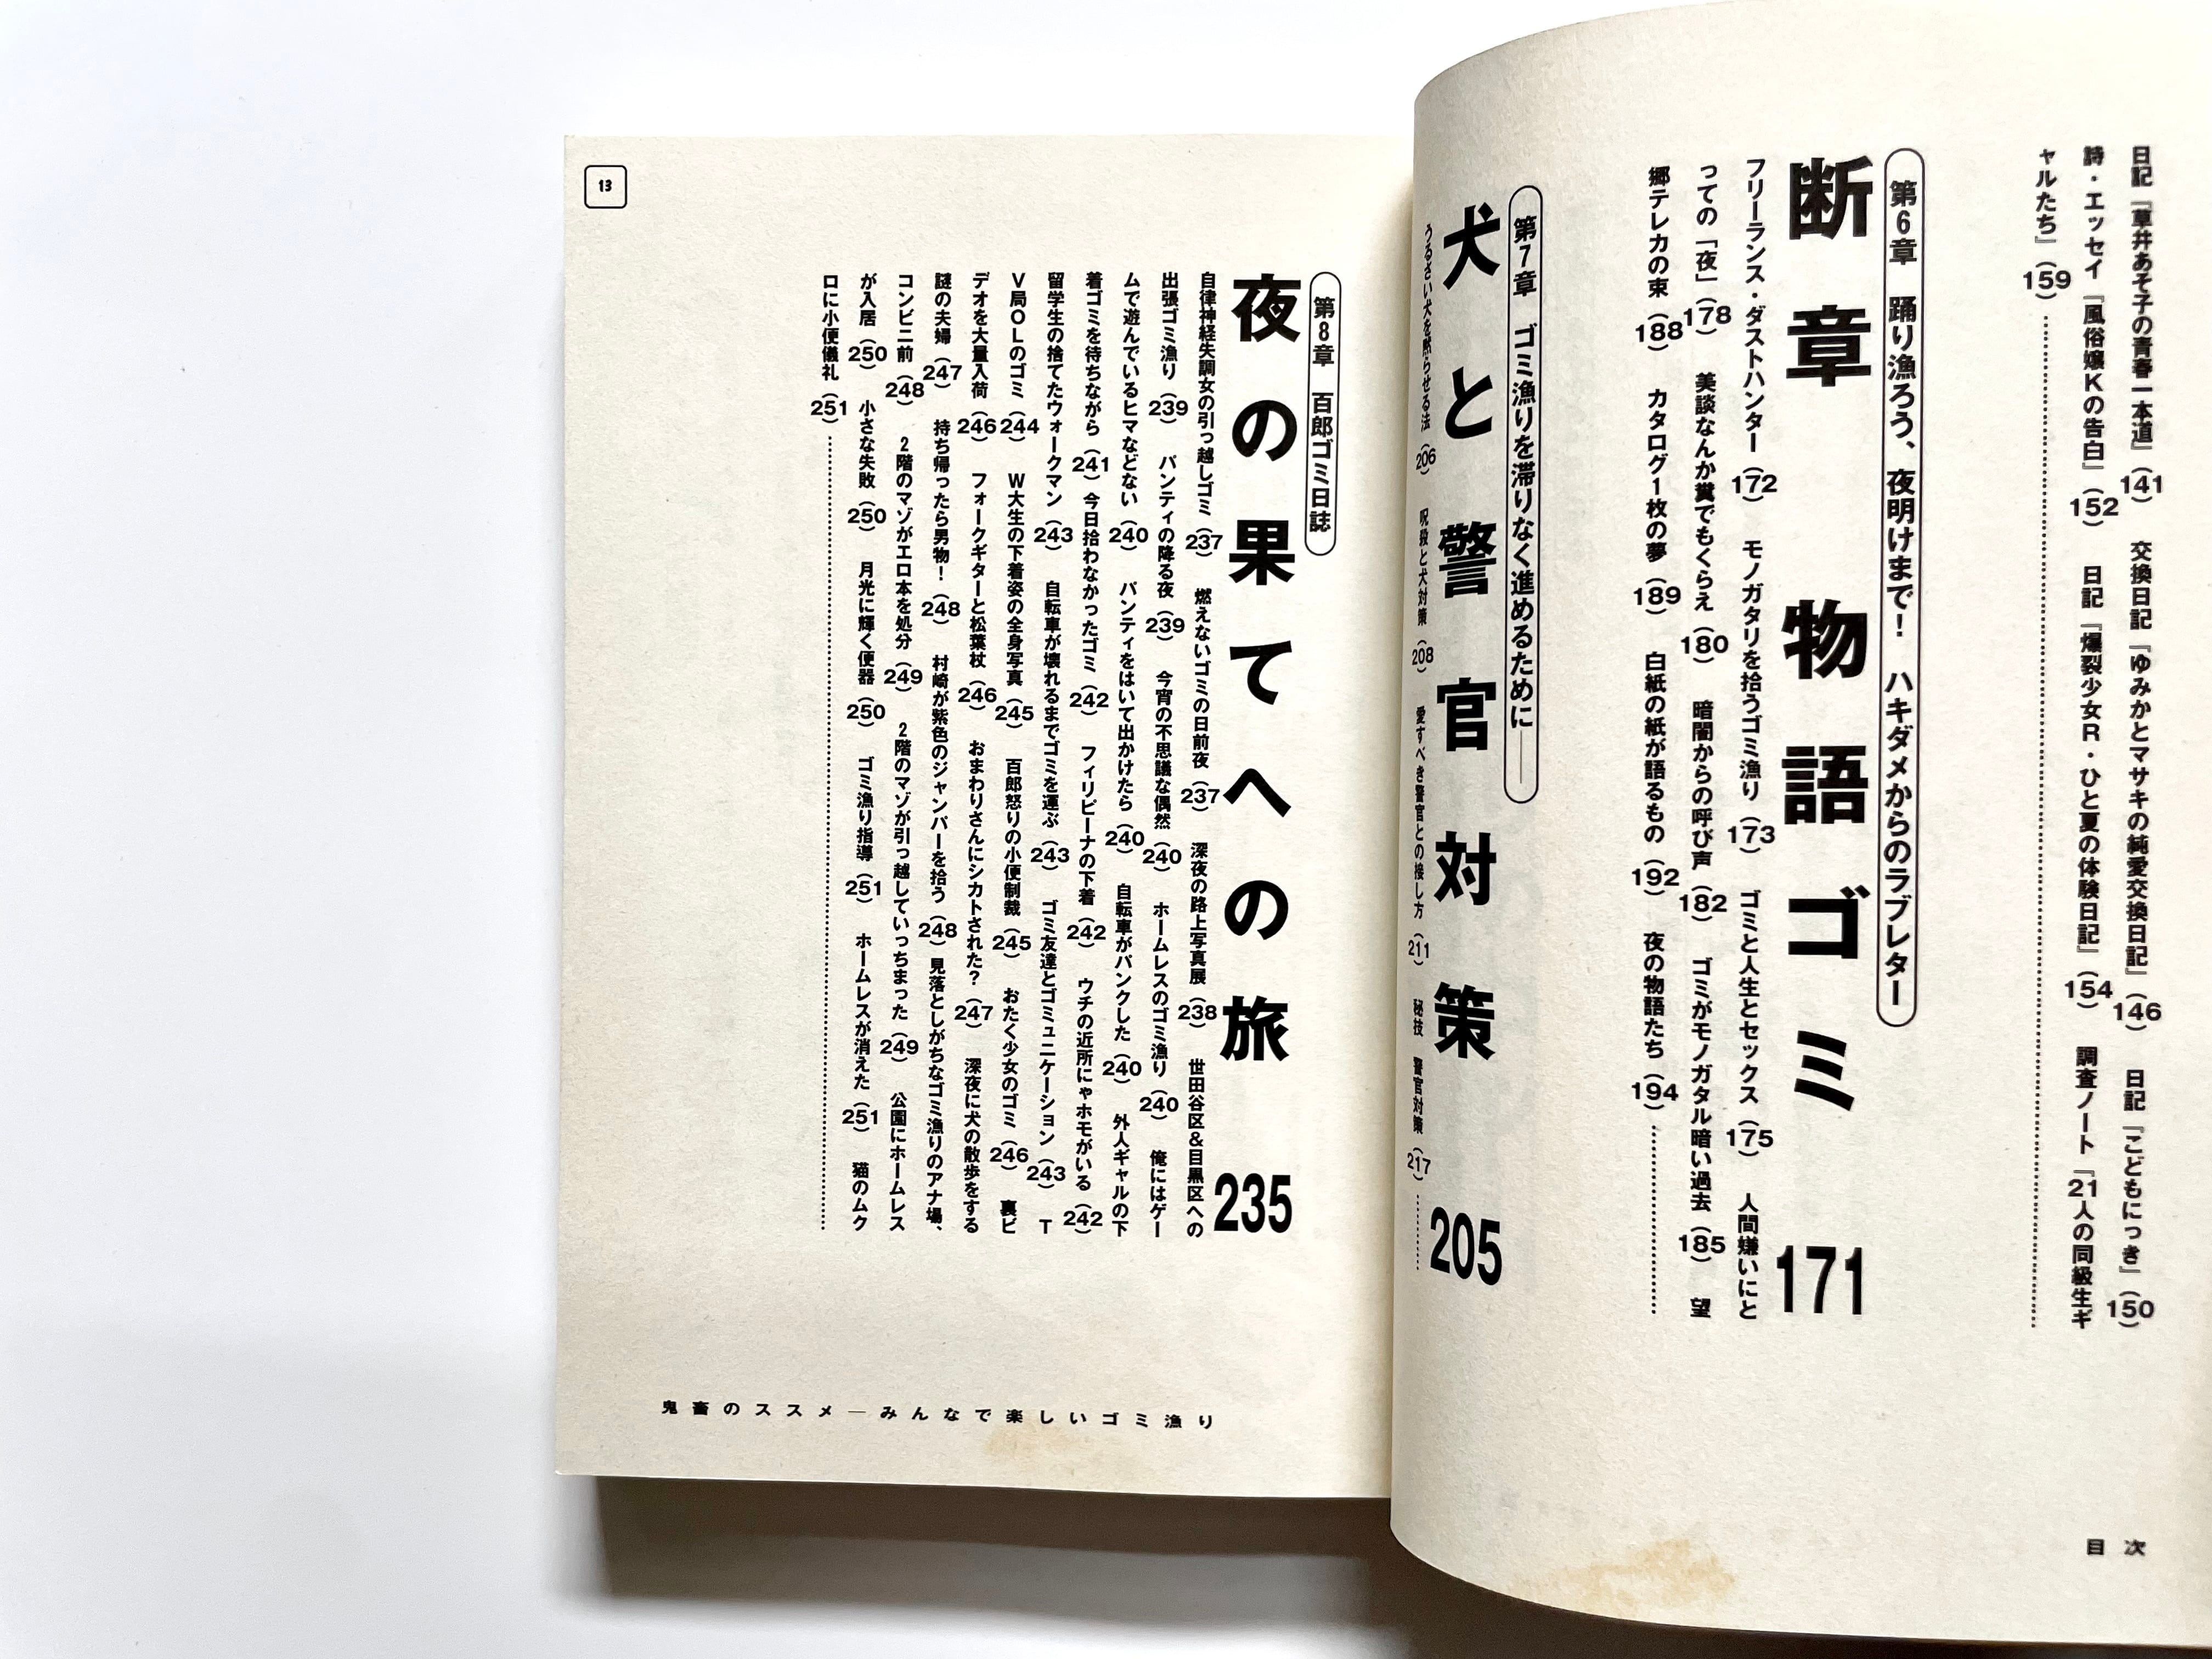 日記『草井あそ子の青春一本道』（141）　交換日記『ゆみかとマサキの純愛交換日記』（146）　日記『こどもにっき』（150）
詩・エッセイ『風俗嬢Kの告白』（152）　日記『爆裂少女R・ひと夏の体験日記』（154）　調査ノート『21人の同級生ギ
ャルたち』（159）
第6章　踊り漁ろう、夜明けまで！　ハキダメからのラブレター
断章　物語ゴミ　171
フリーランス・ダストハンター（172）　モノガタリを拾うゴミ漁り（173）　ゴミと人生とセックス（175）　人間嫌いにと
っての「夜」（178）　美談なんか糞でもくらえ（180）　暗闇からの呼び声（182）　ゴミがモノガタル暗い過去（185）　望
郷テレカの束（188）　カタログ1枚の夢（189）　白紙の紙が語るもの（192）　夜の物語たち（194）
第7章　ゴミ漁りを滞りなく進めるために――
犬と警官対策　205
うるさい犬を黙らせる法（206）　呪殺と犬対策（208）　愛すべき警官との接し方（211）　秘技　警官対策（217）
目次
13
第8章　百郎ゴミ日誌
夜の果てへの旅　235
自律神経失調女の引っ越しゴミ（237）　燃えないゴミの日前夜（237）　深夜の路上写真展（238）　世田谷区＆目黒区への
出張ゴミ漁り（239）　パンティの降る夜（239）　今宵の不思議な偶然（240）　ホームレスのゴミ漁り（240）　俺にはゲー
ムで遊んでいるヒマなどない（240）　パンティをはいて出かけたら（240）　自転車がパンクした（240）　外人ギャルの下
着ゴミを待ちながら（241）今日拾わなかったゴミ（242）　フィリピーナの下着（242）　ウチの近所にゃホモがいる（242）
留学生の捨てたウォークマン（243）　自転車が壊れるまでゴミを運ぶ（243）　ゴミ友達とゴミュニケーション（243）　T
V局OLのゴミ（244）　W大生の下着姿の全身写真（245）　百郎怒りの小便制裁（245）　おたく少女のゴミ（246）　裏ビ
デオを大量入荷（246）　フォークギターと松葉杖（246）　おまわりさんにシカトされた？（247）　深夜に犬の散歩をする
謎の夫婦（247）　持ち帰ったら男物！（248）　村崎が紫色のジャンパーを拾う（248）見落としがちなゴミ漁りのアナ場、
コンビニ前（248）　2階のマゾがエロ本を処分（249）　2階のマゾが引っ越していっちまった（249）　公園にホームレス
が入居（250）　小さな失敗（250）　月光に輝く便器（250）　ゴミ漁り指導（251）　ホームレスが消えた（251）　猫のムク
ロに小便儀礼（251）
鬼畜のススメ―みんなで楽しいゴミ漁り